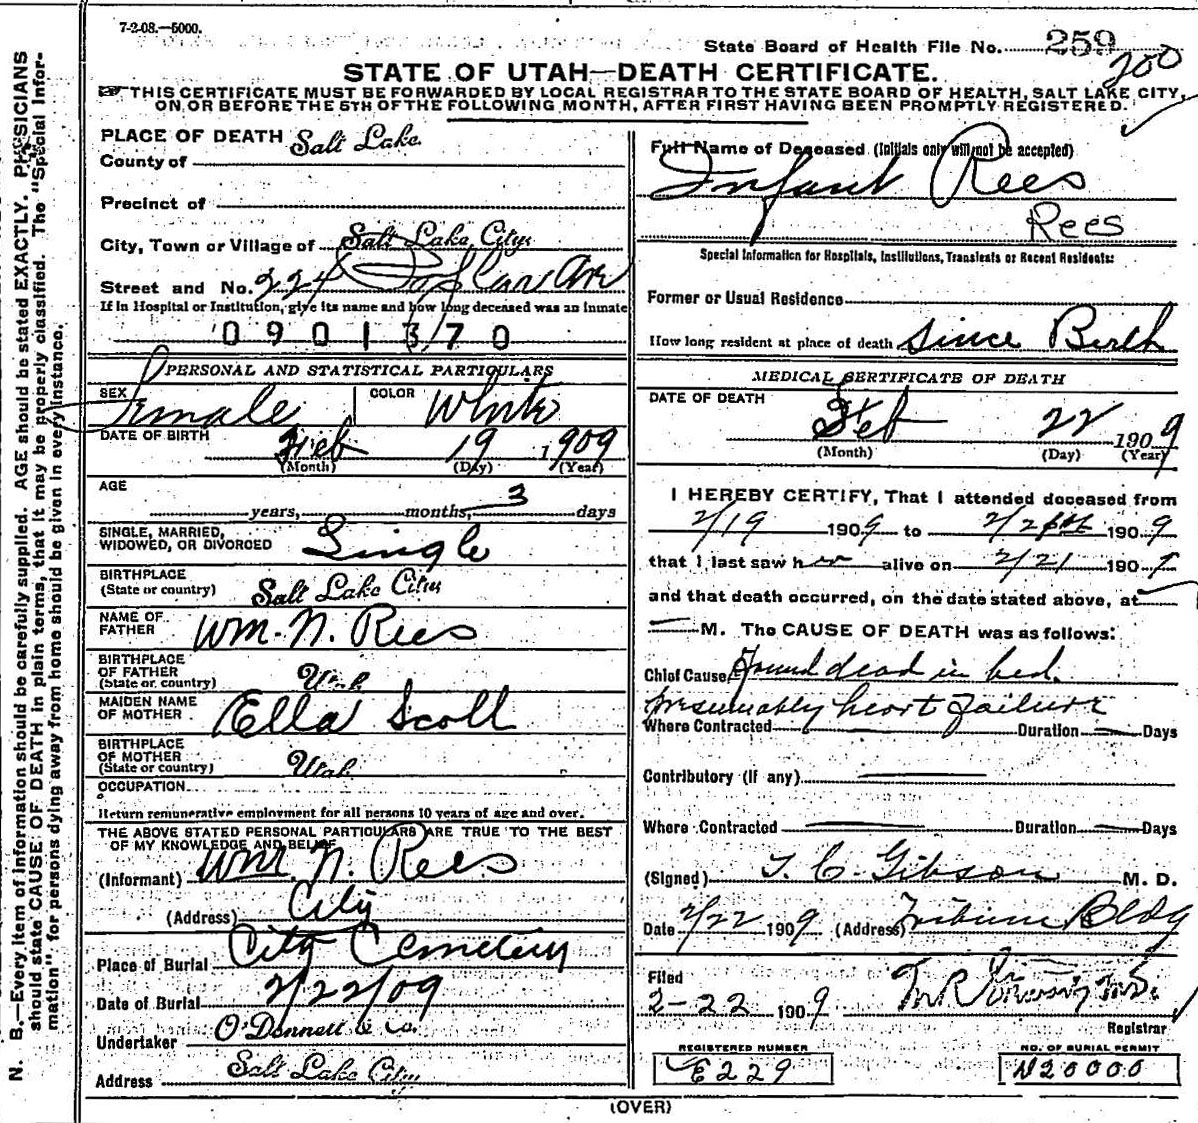 7-2-08.—5000.
State Board of Health File No. 259
200
STATE OF UTAH—DEATH CERTIFICATE.
THIS CERTIFICATE MUST BE FORWARDED BY LOCAL REGISTRAR TO THE STATE BOARD OF HEALTH, SALT LAKE CITY,
ON OR BEFORE THE 5TH OF THE FOLLOWING MONTH, AFTER FIRST HAVING BEEN PROMPTLY REGISTERED.
N. B.—Every item of information should be carefully supplied. AGE should be stated EXACTLY. PHYSICIANS
should state CAUSE OF DEATH in plain terms, that it may be properly classified. The "Special Infor-
mation" for persons dying away from home should be given in every instance.
PLACE OF DEATH Salt Lake
County of
Precinct of
City, Town or Village of Salt Lake City
Street and No. 224
If in Hospital or Institution, give its name and how long deceased was an inmate
0901370
PERSONAL AND STATISTICAL PARTICULARS
SEX Female COLOR White
DATE OF BIRTH Feb 19 1909
(Month) (Day) (Year)
AGE
years, months, 3 days
SINGLE, MARRIED,
WIDOWED, OR DIVORCED Single
BIRTHPLACE
(State or country) Salt Lake City
NAME OF
FATHER Wm. N. Rees
BIRTHPLACE
OF FATHER
(State or country) Utah
MAIDEN NAME
OF MOTHER Ella Scott
BIRTHPLACE
OF MOTHER
(State or country) Utah
OCCUPATION
Return remunerative employment for all persons 10 years of age and over.
THE ABOVE STATED PERSONAL PARTICULARS ARE TRUE TO THE BEST
OF MY KNOWLEDGE AND BELIEF
(Informant) Wm. N. Rees
(Address) City
Place of Burial City Cemetery
Date of Burial 2/22/09
Undertaker O'Donnell & Co.
Address Salt Lake City
Full Name of Deceased (Initials only will not be accepted)
Infant Rees
Rees
Special Information for Hospitals, Institutions, Transients or Recent Residents:
Former or Usual Residence
How long resident at place of death Since Birth
MEDICAL CERTIFICATE OF DEATH
DATE OF DEATH
Feb 22 1909
(Month) (Day) (Year)
I HEREBY CERTIFY, That I attended deceased from
2/19 1909 to 2/2 1909
that I last saw her alive on 2/21 1909
and that death occurred, on the date stated above, at
M. The CAUSE OF DEATH was as follows:
Chief Cause Found dead in bed.
presumably heart failure
Where Contracted Duration Days
Contributory (If any)
Where Contracted Duration Days
(Signed) T. C. Gibson M. D.
Date 2/22 1909 (Address) Tribune Bldg
Filed
2-22 1909
Registrar
REGISTERED NUMBER
E229
NO. OF BURIAL PERMIT
N20000
(OVER)